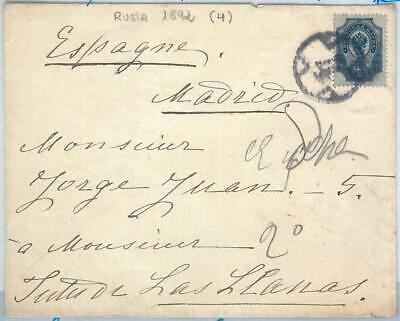 RUSIA 1892 (4)
Espagne.
Madrid.
Monsieur
Jorge Juan. - 5.
à Monsieur 2º
Las Llanas.